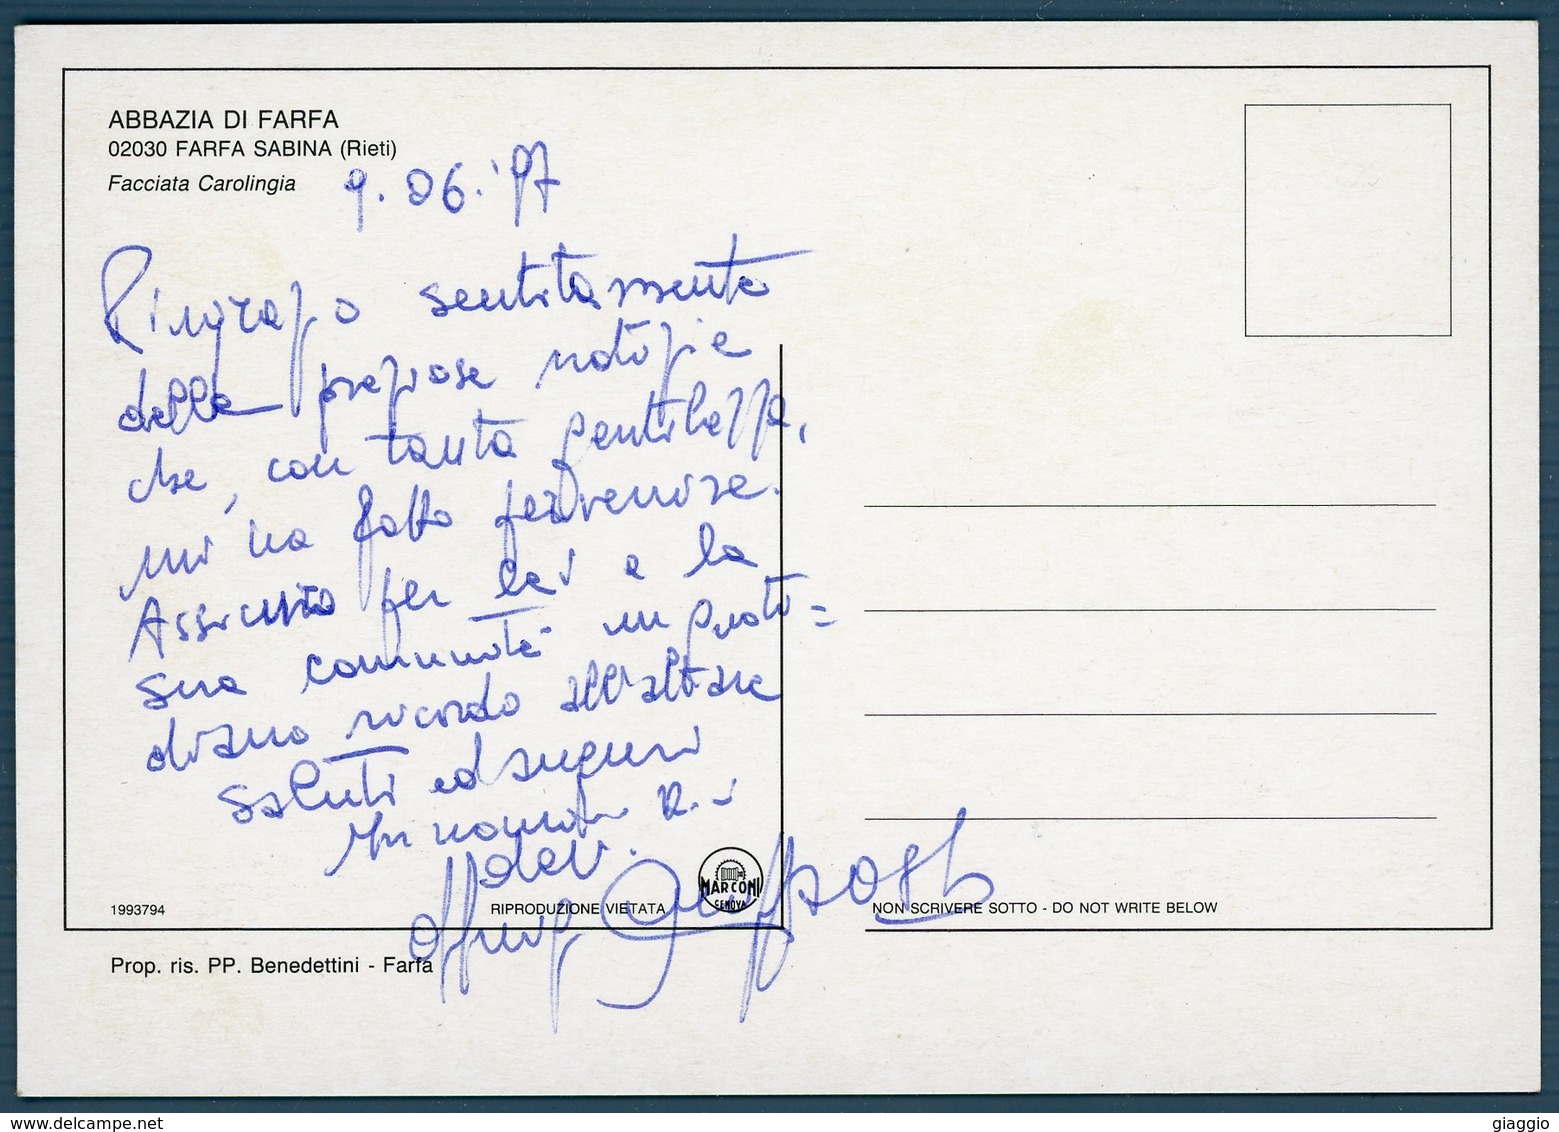 ABBAZIA DI FARFA
02030 FARFA SABINA (Rieti)
Facciata Carolingia
9.06.'97
Ringrazio sentitamente
delle preziose notizie
che, con tanta gentilezza,
mi ha fatto pervenire.
Assicuro per Lei e la
sua comunità un quoti=
diano ricordo all'altare
Saluti ed auguri
In
dev.
MARCONI
GENOVA
1993794
RIPRODUZIONE VIETATA
NON SCRIVERE SOTTO - DO NOT WRITE BELOW
Prop. ris. PP. Benedettini - Farfa
delcampe.net
giaggio